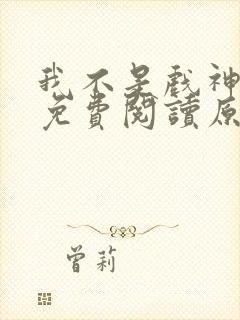 我不是戲神
免費閱讀原
曾莉